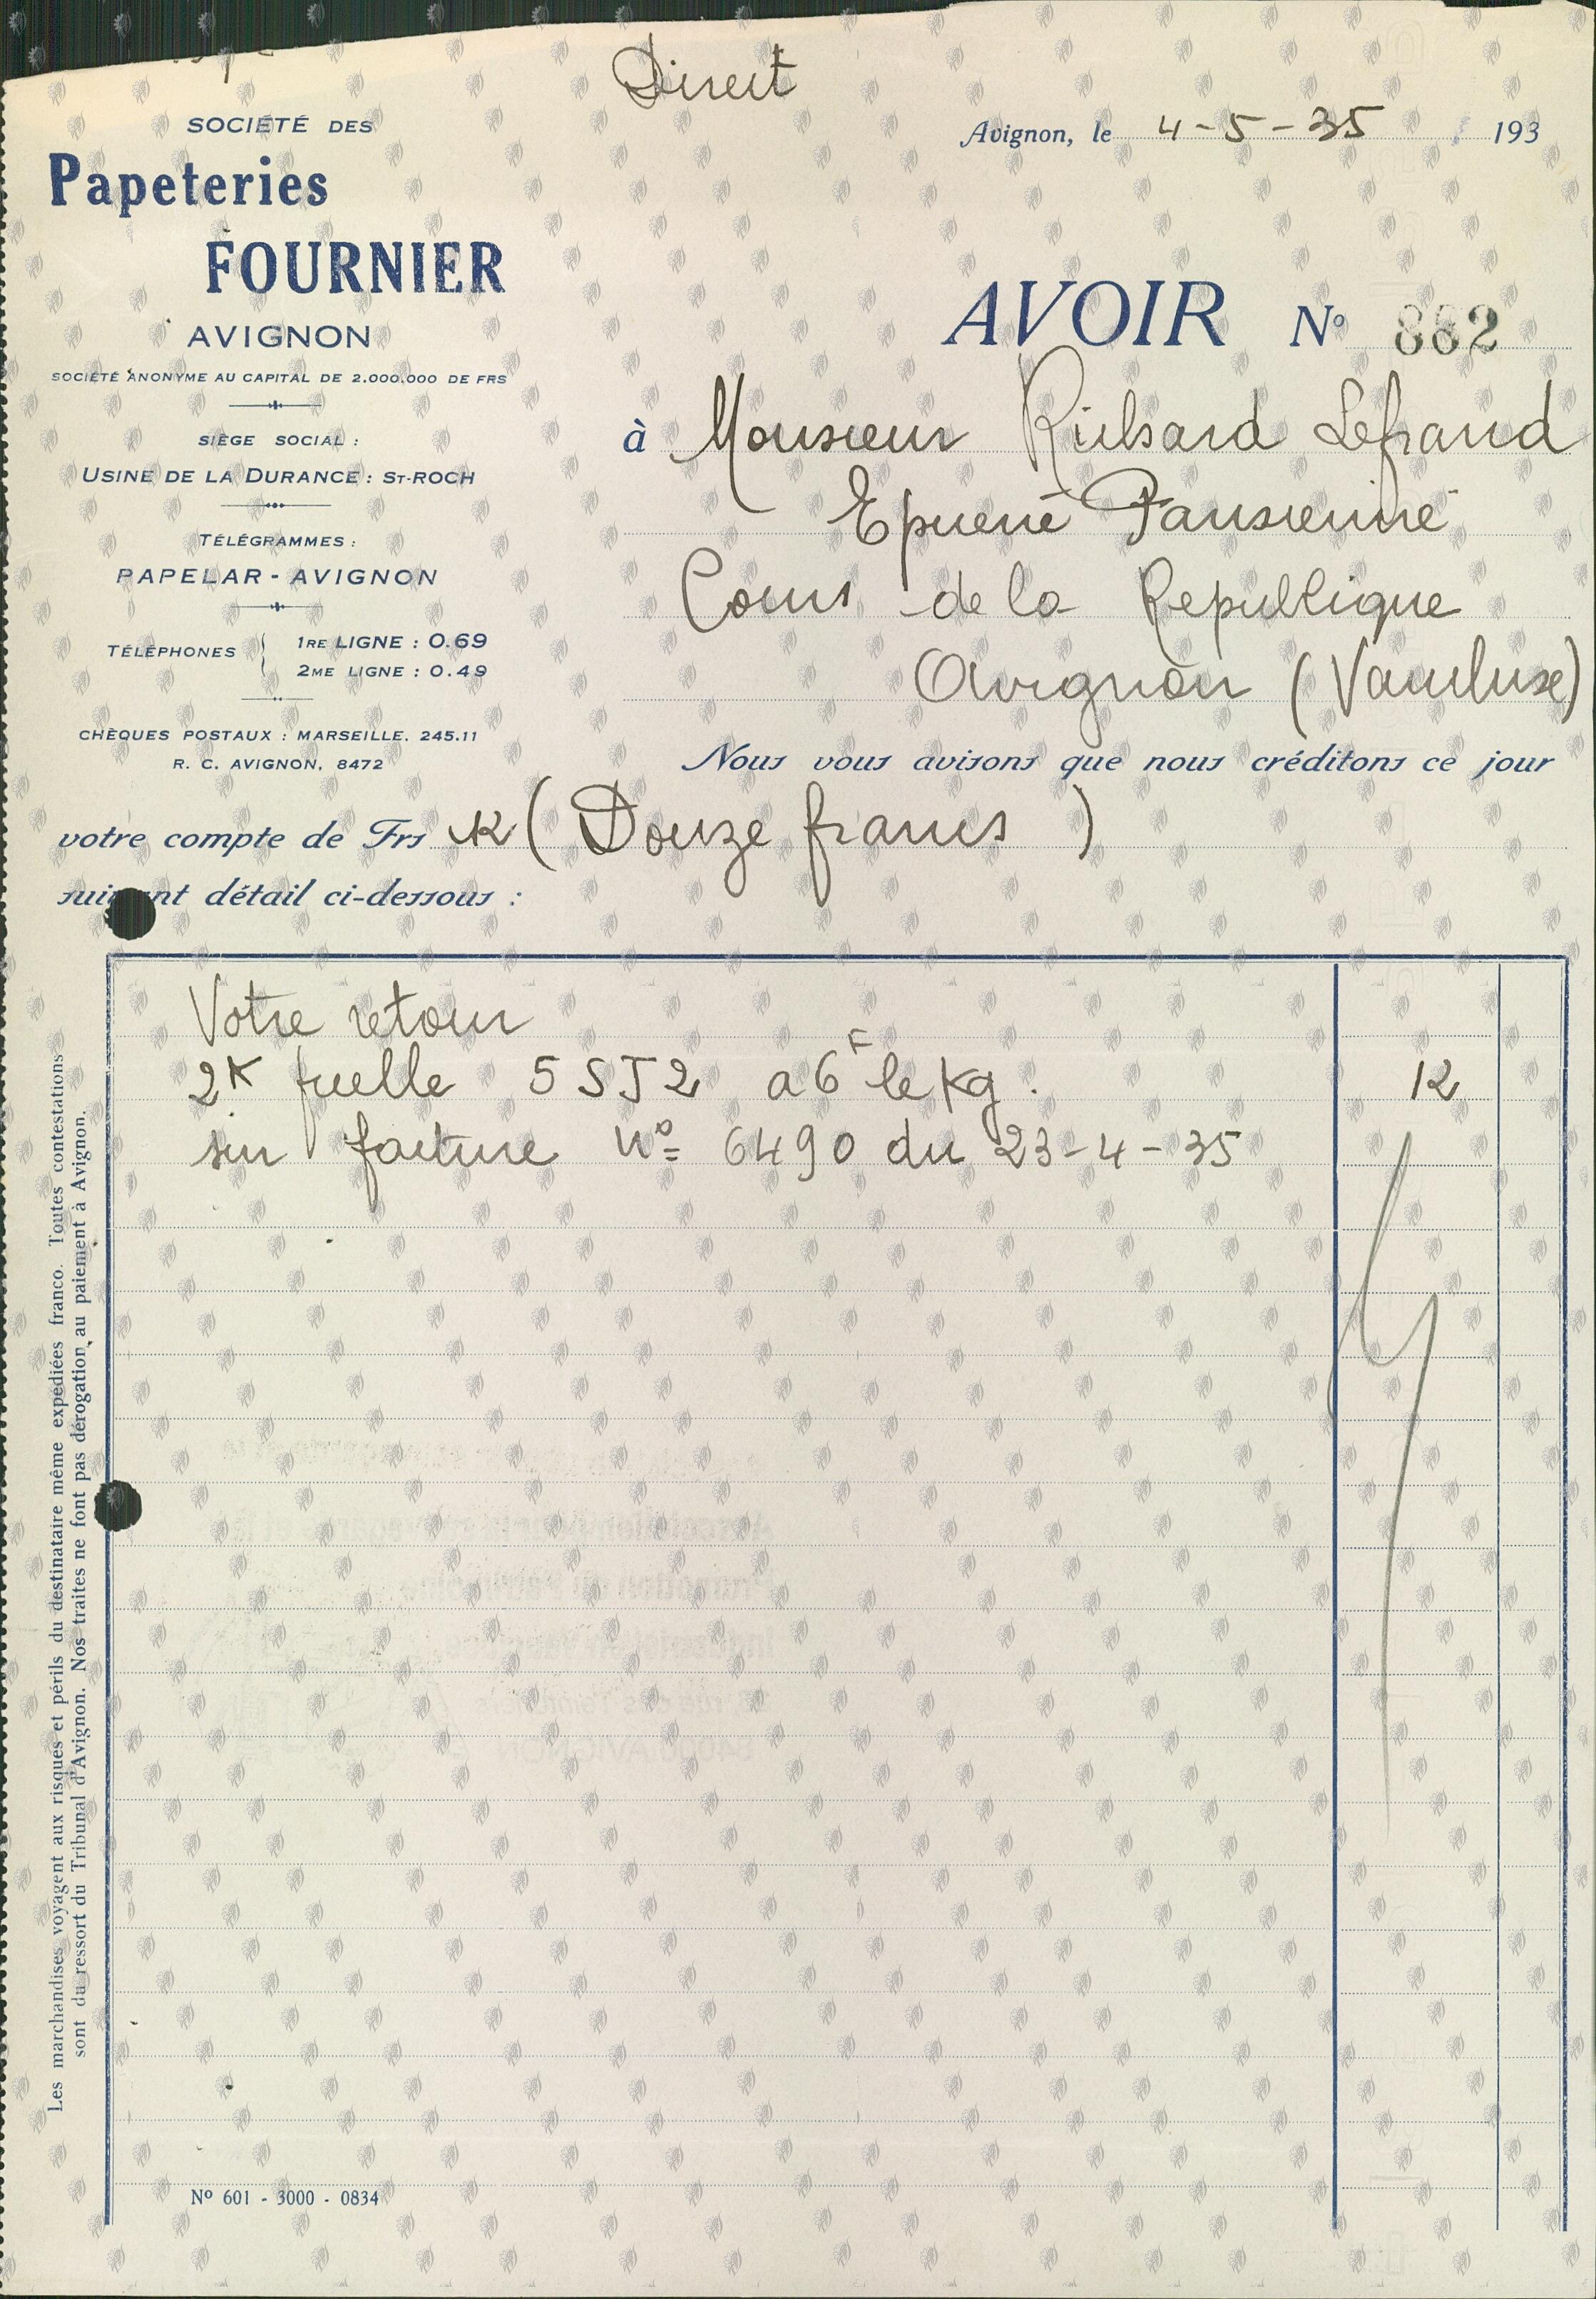 Direct
SOCIÉTÉ DES
Papeteries
FOURNIER
AVIGNON
SOCIÉTÉ ANONYME AU CAPITAL DE 2.000.000 DE FRS
SIÈGE SOCIAL :
USINE DE LA DURANCE : ST-ROCH
TÉLÉGRAMMES :
PAPELAR - AVIGNON
TÉLÉPHONES 1RE LIGNE : 0.69
2ME LIGNE : 0.49
CHÈQUES POSTAUX : MARSEILLE. 245.11
R. C. AVIGNON, 8472
Avignon, le 4-5-35 193
AVOIR No 862
à Monsieur Richard Lefrand
Epicerie Parisienne
Cours de la Republique
Avignon (Vaucluse)
Nous vous avisons que nous créditons ce jour
votre compte de Frs 12 ( Douze francs )
suivant détail ci-dessous :
Votre retour
2K ficelle 5 SJ2 a 6F le kg. 12
sur facture No 6490 du 23-4-35
Les marchandises voyagent aux risques et périls du destinataire même expédiées franco. Toutes contestations
sont du ressort du Tribunal d'Avignon. Nos traites ne font pas dérogation au paiement à Avignon.
No 601 - 3000 - 0834